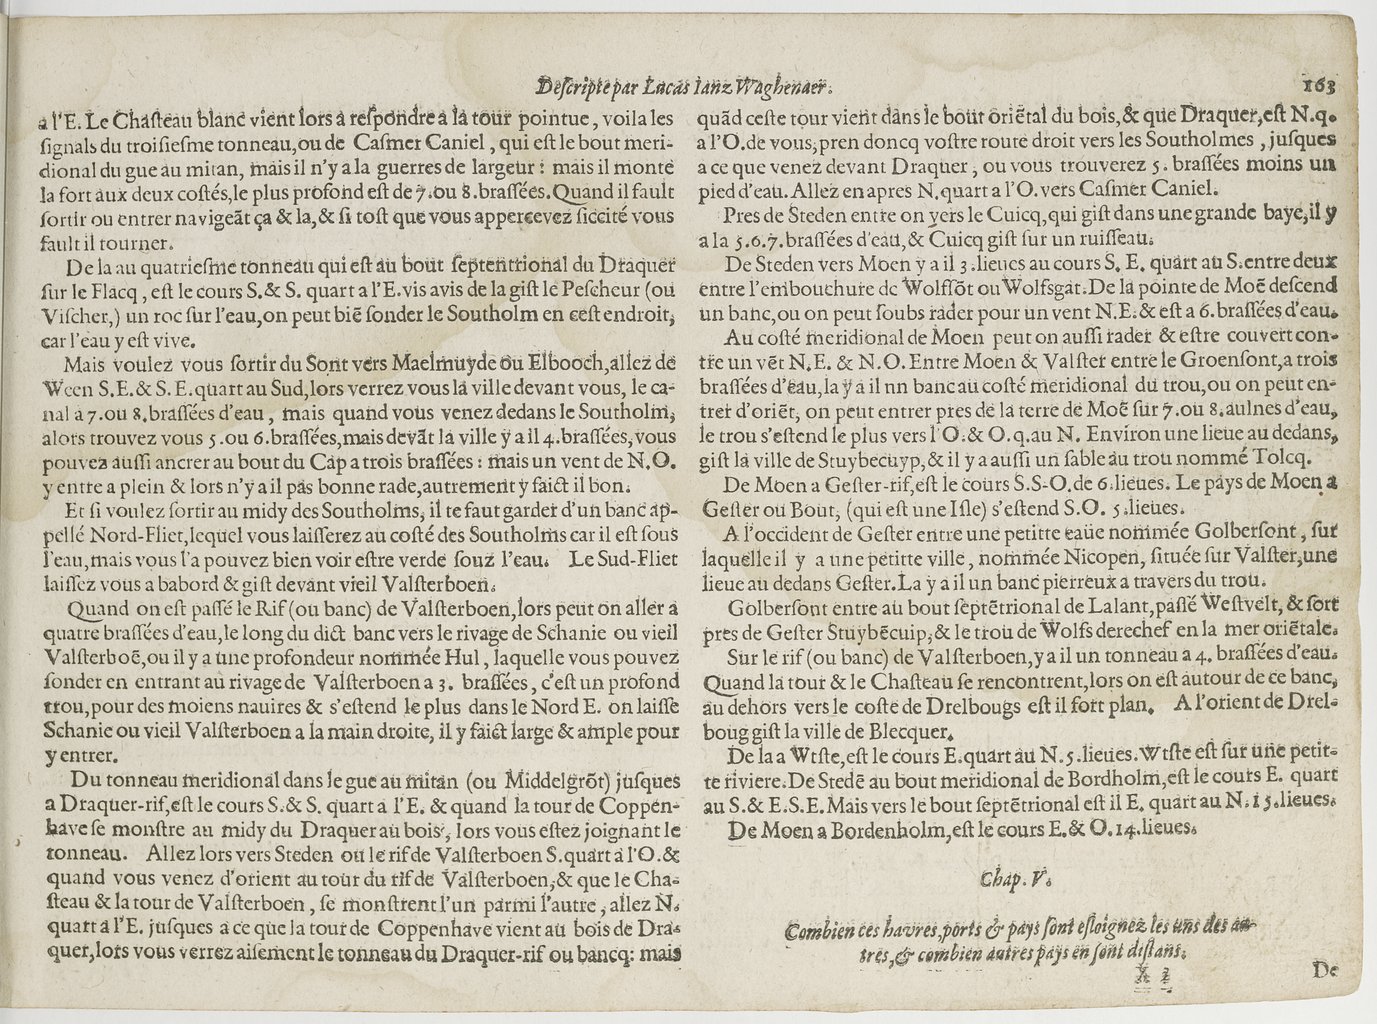 Descripte par Lucas Ianz Waghenaer.
163
a l'E. Le Chasteau blanc vient lors a respondre a la tour pointue, voila les
signals du troisiesme tonneau, ou de Casmer Caniel, qui est le bout meri-
dional du gue au mitan, mais il n'y a la guerres de largeur: mais il monte
la fort aux deux costés, le plus profond est de 7. ou 8. brassées. Quand il fault
sortir ou entrer navigeãt ça & la, & si tost que vous appercevez siccité vous
fault il tourner.
De la au quatriesme tonneau qui est au bout septentrional du Draquer
sur le Flacq, est le cours S. & S. quart a l'E. vis avis de la gist le Pescheur (ou
Vischer,) un roc sur l'eau, on peut biẽ sonder le Southolm en cest endroit,
car l'eau y est vive.
Mais voulez vous sortir du Sont vers Maelmuyde ou Elbooch, allez de
Ween S.E. & S. E. quart au Sud, lors verrez vous la ville devant vous, le ca-
nal a 7. ou 8. brassées d'eau, mais quand vous venez dedans le Southolm,
alors trouvez vous 5. ou 6. brassées, mais devãt la ville y a il 4. brassées, vous
pouvez aussi ancrer au bout du Cap a trois brassées: mais un vent de N.O.
y entre a plein & lors n'y a il pas bonne rade, autrement y faict il bon.
Et si voulez sortir au midy des Southolms, il te faut garder d'un banc ap-
pellé Nord-Fliet, lequel vous laisserez au costé des Southolms car il est sous
l'eau, mais vous l'a pouvez bien voir estre verde souz l'eau. Le Sud-Fliet
laissez vous a babord & gist devant vieil Valsterboen.
Quand on est passé le Rif (ou banc) de Valsterboen, lors peut on aller a
quatre brassées d'eau, le long du dict banc vers le rivage de Schanie ou vieil
Valsterboẽ, ou il y a une profondeur nommée Hul, laquelle vous pouvez
sonder en entrant au rivage de Valsterboen a 3. brassées, c'est un profond
trou, pour des moiens navires & s'estend le plus dans le Nord E. on laisse
Schanie ou vieil Valsterboen a la main droite, il y faict large & ample pour
y entrer.
Du tonneau meridional dans le gue au mitan (ou Middelgrõt) jusques
a Draquer-rif, est le cours S. & S. quart a l'E. & quand la tour de Coppen-
have se monstre au midy du Draquer au bois, lors vous estez joignant le
tonneau. Allez lors vers Steden ou le rif de Valsterboen S. quart a l'O. &
quand vous venez d'orient au tour du rif de Valsterboen, & que le Cha-
steau & la tour de Valsterboen, se monstrent l'un parmi l'autre, allez N.
quart a l'E. jusques a ce que la tour de Coppenhave vient au bois de Dra-
quer, lors vous verrez aisement le tonneau du Draquer-rif ou bancq: mais
quãd ceste tour vient dans le bout oriẽtal du bois, & que Draquer, est N. q.
a l'O. de vous, pren doncq vostre route droit vers les Southolmes, jusques
a ce que venez devant Draquer, ou vous trouverez 5. brassées moins un
pied d'eau. Allez en apres N. quart a l'O. vers Casmer Caniel.
Pres de Steden entre on vers le Cuicq, qui gist dans une grande baye, il y
a la 5.6.7. brassées d'eau, & Cuicq gist sur un ruisseau.
De Steden vers Moen y a il 3. lieues au cours S. E. quart au S. entre deux
entre l'embouchure de Wolfsõt ou Wolfsgat. De la pointe de Moẽ descend
un banc, ou on peut soubs rader pour un vent N.E. & est a 6. brassées d'eau.
Au costé meridional de Moen peut on aussi rader & estre couvert con-
tre un vẽt N.E. & N.O. Entre Moen & Valster entre le Groensont, a trois
brassées d'eau, la y a il nn banc au costé meridional du trou, ou on peut en-
trer d'oriẽt, on peut entrer pres de la terre de Moẽ sur 7. ou 8. aulnes d'eau,
le trou s'estend le plus vers l'O. & O. q. au N. Environ une lieue au dedans,
gist la ville de Stuybecuyp, & il y a aussi un sable au trou nommé Tolcq.
De Moen a Gester-rif, est le cours S.S-O. de 6. lieues. Le pays de Moen a
Gester ou Bout, (qui est une Isle) s'estend S.O. 5. lieues.
A l'occident de Gester entre une petitte eaüe nommée Golbersont, sur
laquelle il y a une petitte ville, nommée Nicopen, située sur Valster, une
lieue au dedans Gester. La y a il un banc pierreux a travers du trou.
Golbersont entre au bout septẽtrional de Lalant, passé Westvelt, & sort
pres de Gester Stuybẽcuip, & le trou de Wolfs derechef en la mer oriẽtale.
Sur le rif (ou banc) de Valsterboen, y a il un tonneau a 4. brassées d'eau.
Quand la tour & le Chasteau se rencontrent, lors on est autour de ce banc,
au dehors vers le coste de Drelbougs est il fort plan. A l'orient de Drel-
boug gist la ville de Blecquer.
De la a Wtste, est le cours E. quart au N. 5. lieues. Wtste est sur une petit-
te riviere. De Stedẽ au bout meridional de Bordholm, est le cours E. quart
au S. & E.S.E. Mais vers le bout septẽtrional est il E. quart au N. 15. lieues.
De Moen a Bordenholm, est le cours E. & O. 14. lieues.
Chap. V.
Combien ces havres, ports & pays sont esloignez les uns des au-
tres, & combien autres pays en sont distans.
X 2
De